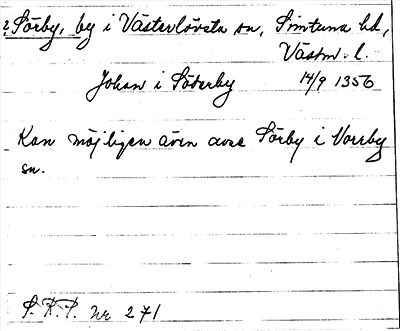 ? Sörby, by i Västerlövsta sn, Simtuna hd,
Västm. l.
Johan i Söderby 14/9 1356
Kan möjligen även avse Sörby i Norrby
sn.
S. R. P. nr 271